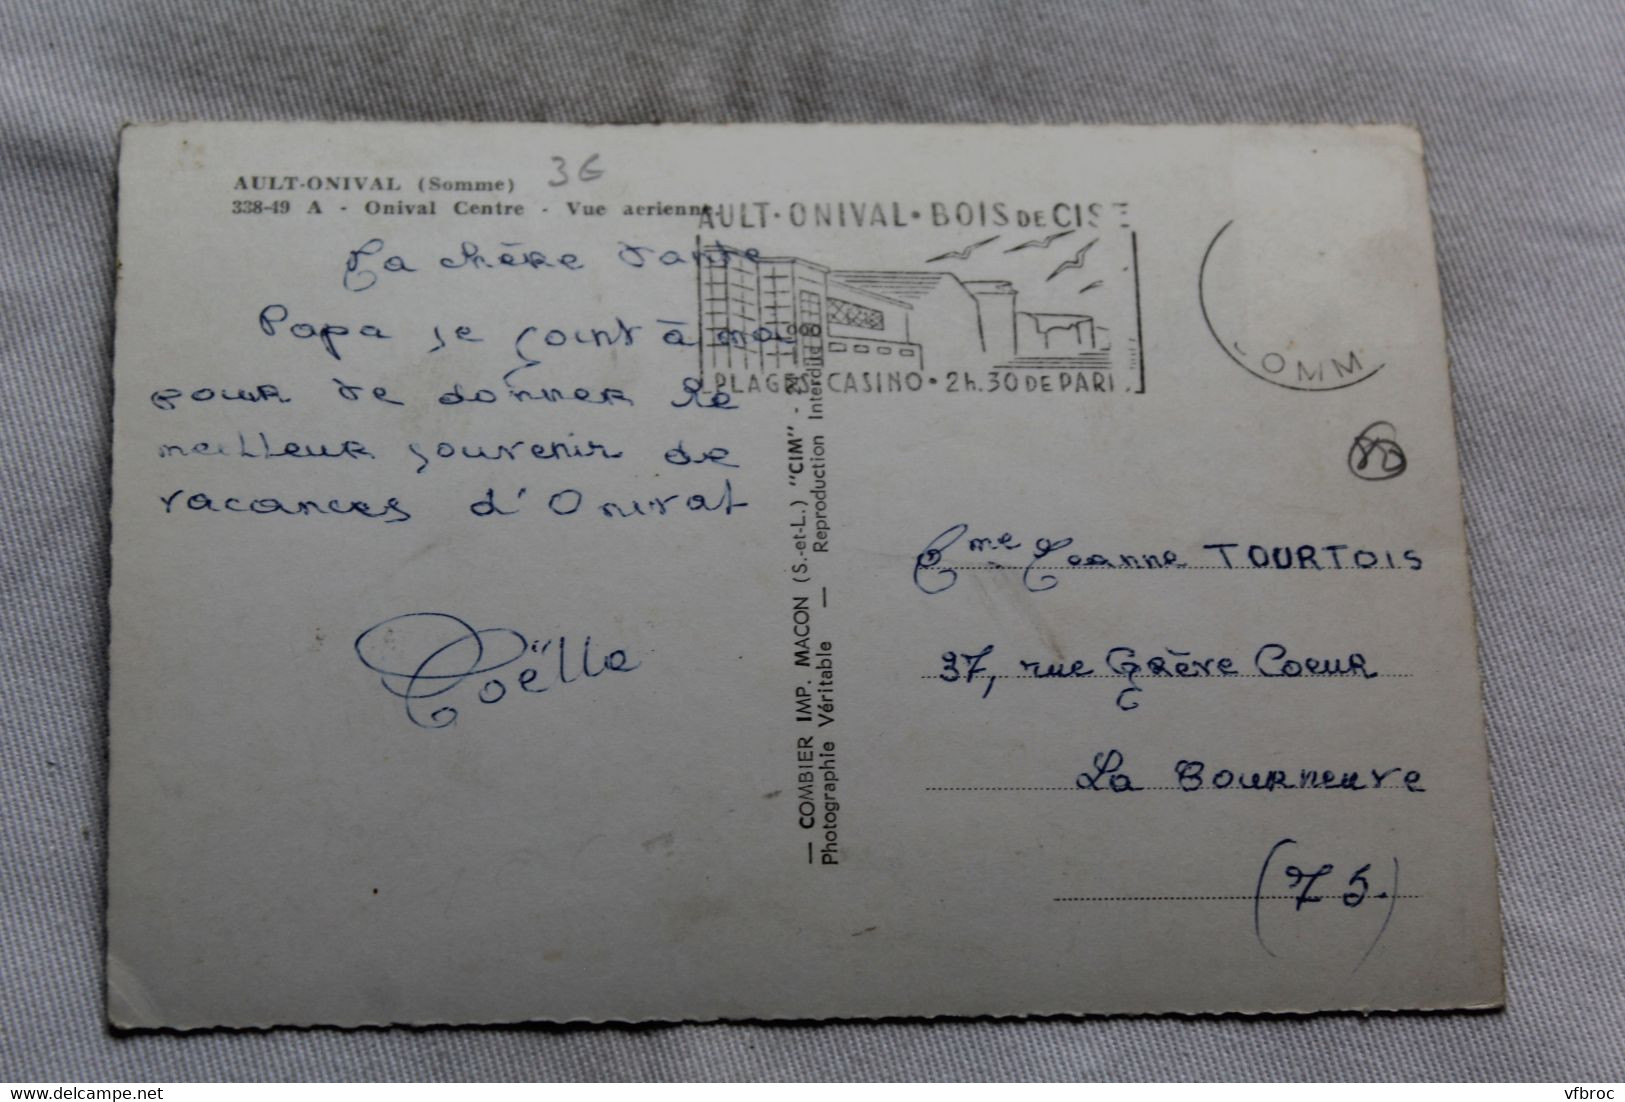 AULT-ONIVAL (Somme) 36
338-49 A - Onival Centre - Vue aerienne
AULT·ONIVAL·BOIS DE CISE
PLAGES·CASINO·2h.30 DE PARI
OMM
Ma chère tante
Papa se joint à moi
pour te donner le
meilleur souvenir de
vacances d'Onival
Joëlle
— COMBIER IMP. MACON (S.-et-L.) "CIM" -
Photographie Véritable — Reproduction Interdite
Mme Jeanne TOURTOIS
37, rue Grève Coeur
La Bourneuve
(75.)
vfbroc